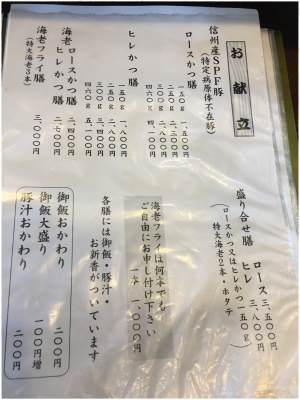 お献立
信州産SPF豚
(特定病原体不在豚)
ロースかつ膳
一五〇g
二五〇g
三〇〇g
四六〇g
ヒレかつ膳
一五〇g 一、八〇〇円
三〇〇g
四六〇g 五、一〇〇円
海老ロースかつ膳 二、四〇〇円
海老ヒレかつ膳 二、七〇〇円
海老フライ膳 三、〇〇〇円
(特大海老3本)
盛り合せ膳
ロース 三、五〇〇円
ヒレ 三、八〇〇円
(ロースかつ又はヒレかつ一五〇g・
特大海老2本・ホタテ)
海老フライは何本でも
ご自由にお申し付け下さい
一本 一、〇〇〇円
各膳には御飯・豚汁・
お新香がついています
御飯おかわり 二〇〇円
御飯大盛り 一〇〇円増
豚汁おかわり 二〇〇円